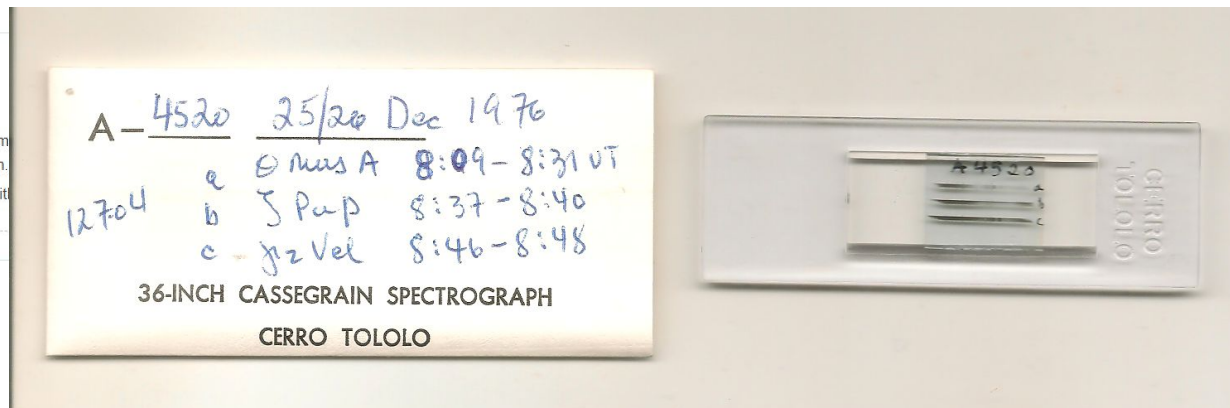 A-4520 25/26 Dec 1976
a θ Mus A 8:09-8:31 UT
12704 b ζ Pup 8:37-8:40
c γ2 Vel 8:46-8:48
36-INCH CASSEGRAIN SPECTROGRAPH
CERRO TOLOLO
A 4520
a
b
c
CERRO
TOLOLO